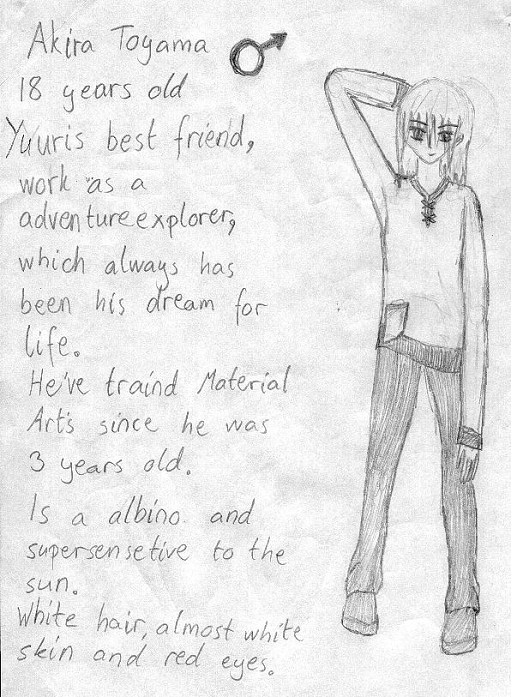 Akira Toyama ♂
18 years old
Yuuris best friend,
work as a
adventureexplorer,
which always has
been his dream for
life.
He've traind Material
Art's since he was
3 years old.
Is a albino and
supersensetive to the
sun.
White hair, almost white
skin and red eyes.